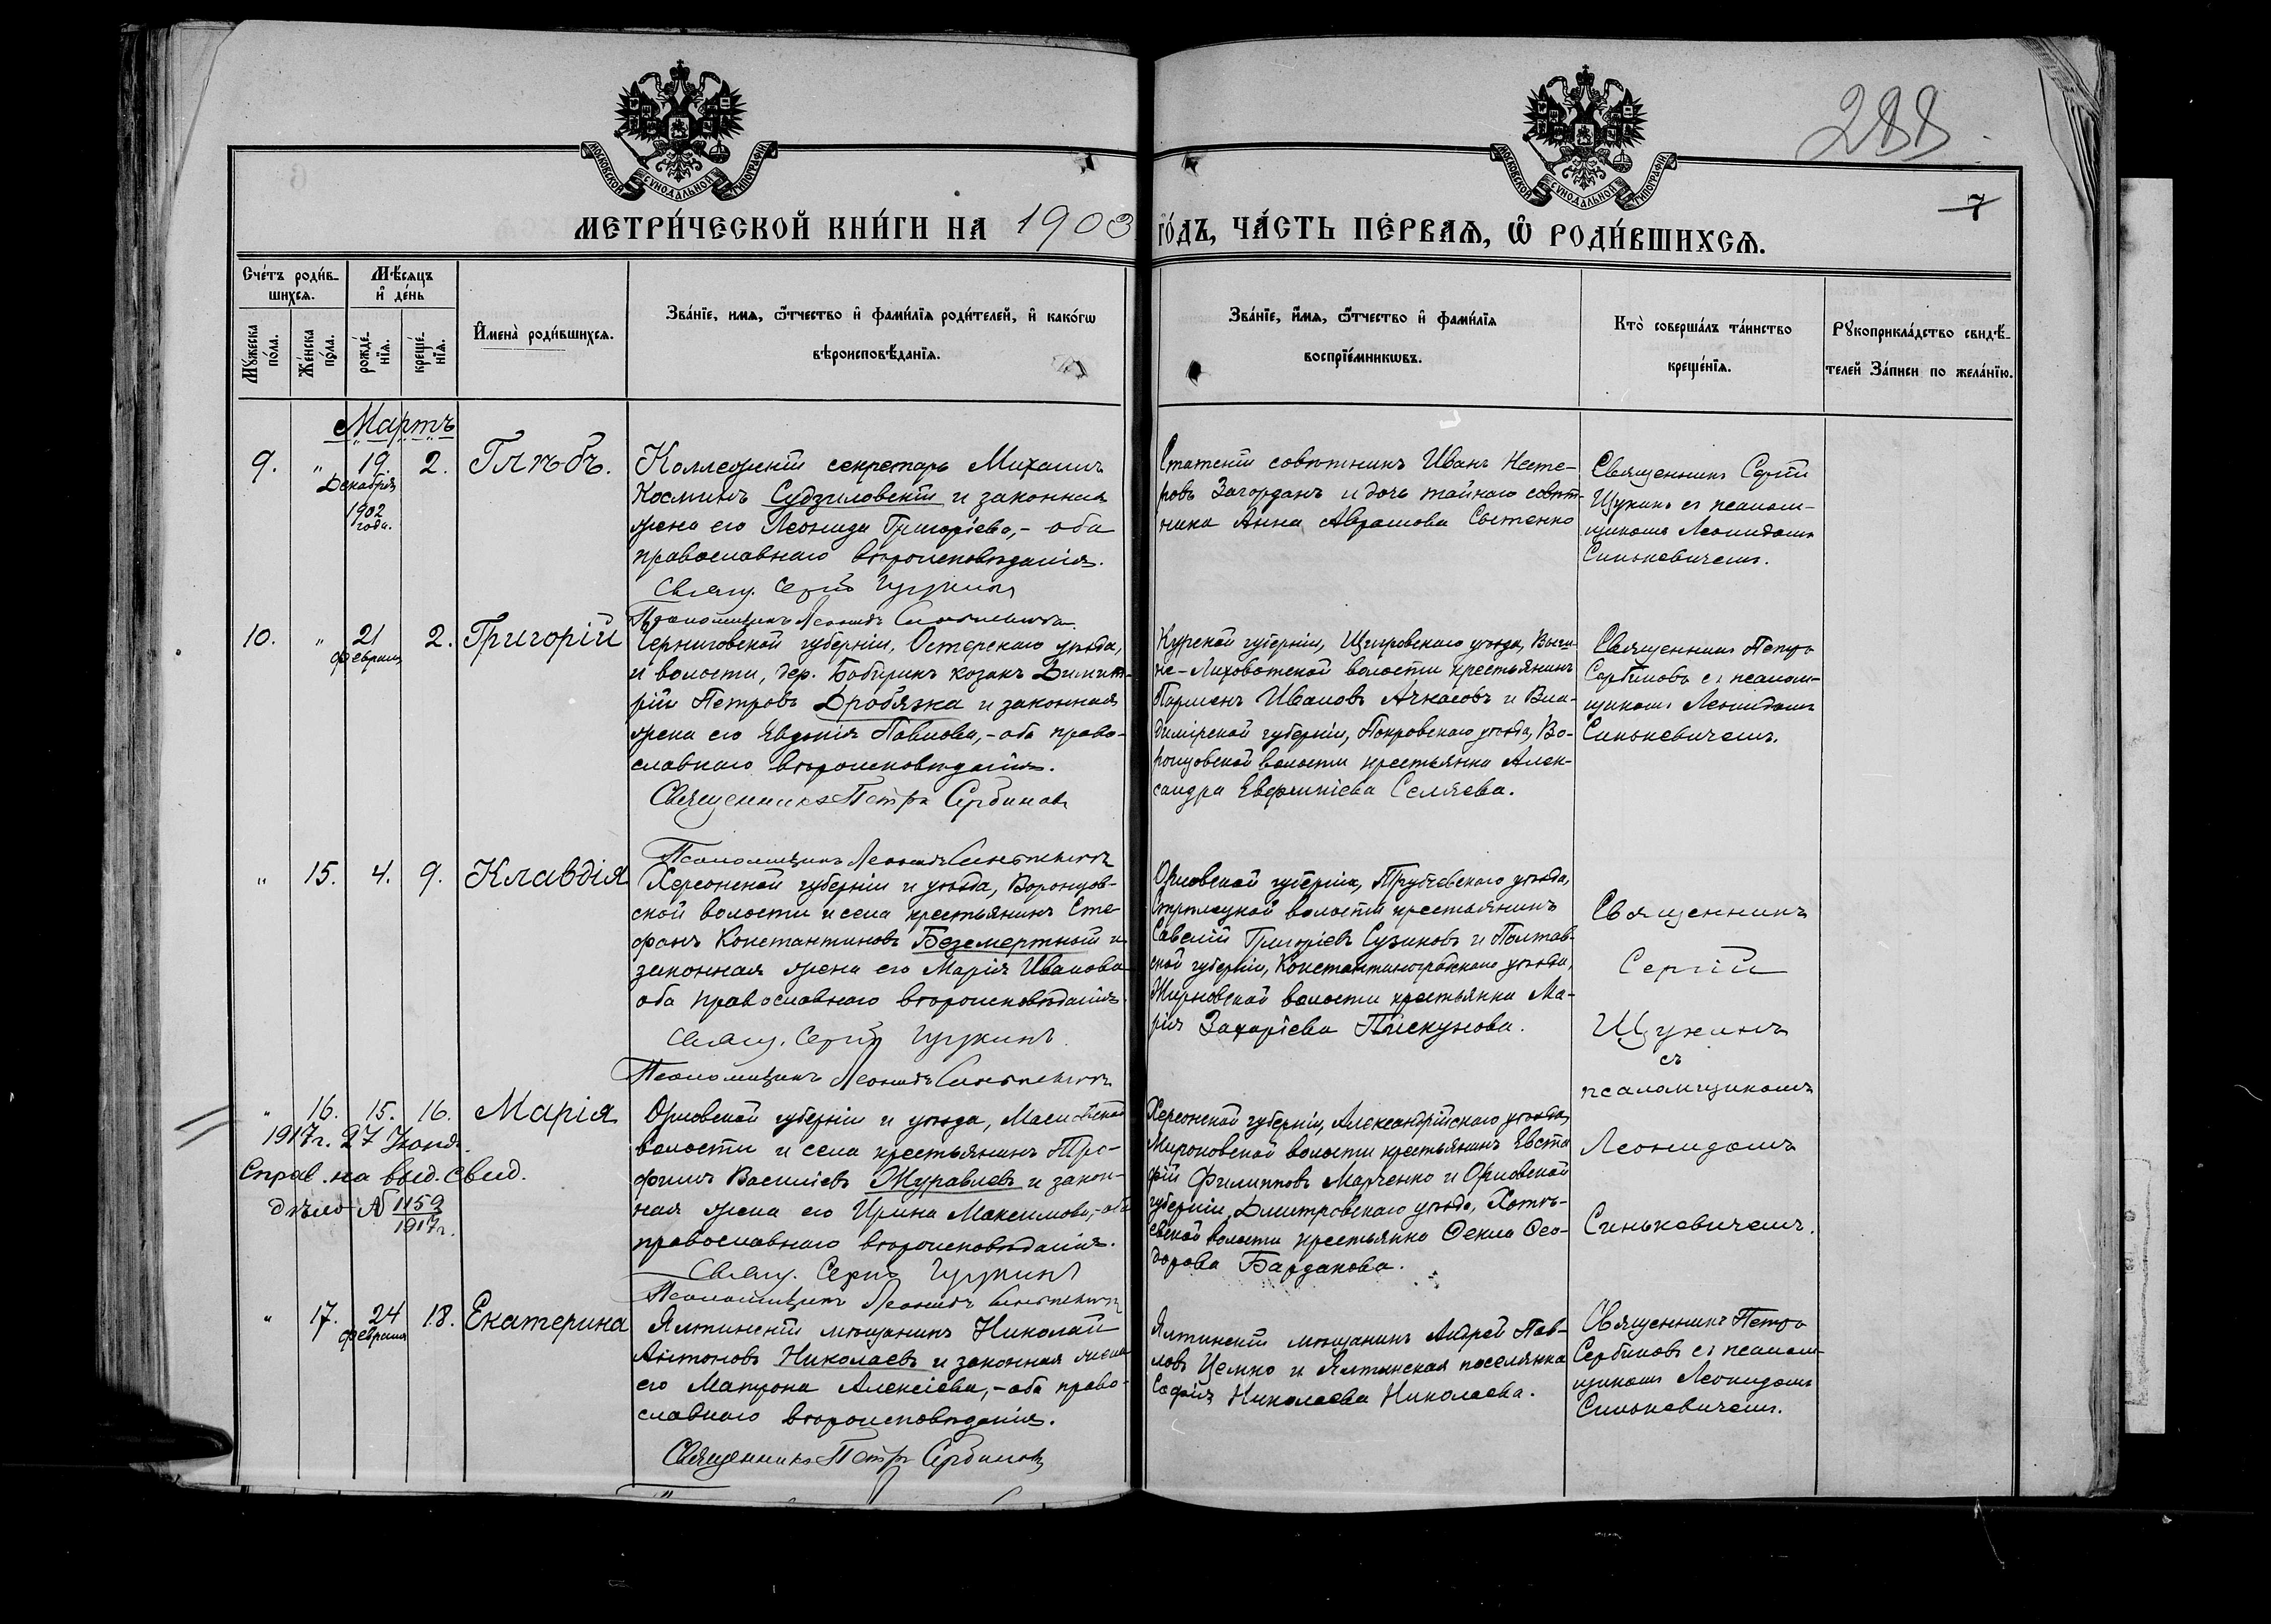 288
7
МОСКОВСКОЙ СѴНОДАЛЬНОЙ ТИПОГРАФІИ
МОСКОВСКОЙ СѴНОДАЛЬНОЙ ТИПОГРАФІИ
МЕТРИ́ЧЕСКОЙ КНИ́ГИ НА 1903
ГО́ДЪ, ЧА́СТЬ ПЕ́РВАѦ, Ѽ РОДИ́ВШИХСѦ.
Сче́тъ роди́в-
шихсѧ.
Мѣ́сѧцъ
и҆ де́нь
Мꙋ́жеска по́ла.
Же́нска по́ла.
рожде́-
нїѧ.
креще́-
нїѧ.
И҆мена̀ роди́вшихсѧ.
Зва́нїе, имѧ, ѻ҆́тчество и҆ фами́лїѧ роди́телей, и҆ како́гѡ
вѣроисповѣ́данїѧ.
Зва́нїе, и҆́мѧ, ѻ҆́тчество и҆ фами́лїѧ
воспрїе́мникѡвъ.
Кто̀ соверша́лъ та́инство
креще́нїѧ.
Рꙋкоприкла́дство свидѣ́-
телей За́писи по жела́нїю.
Мартъ
9. " 19. Декабря 1902 года. 2. Глѣбъ.
Коллежскій секретарь Михаилъ
Косминъ Судзиловскій и законная
жена его Леонида Григоріева,- оба
православнаго вѣроисповѣданія.
Свящ. Сергій Щукинъ
Псаломщикъ Леонидъ Синькевичъ
Статскій совѣтникъ Иванъ Несте-
ровъ Загорданъ и дочь тайнаго совѣт-
ника Анна Аврамова Сытенко
Священникъ Сергій
Щукинъ съ псалом-
щикомъ Леонидомъ
Синькевичемъ.
10. " 21 февраля 2. Григорій
Черниговской губерніи, Остерскаго уѣзда,
и волости, дер. Бобирикъ козакъ Димит-
рій Петровъ Дробязка и законная
жена его Евдокія Павлова,- оба право-
славнаго вѣроисповѣданія.
Священникъ Петръ Сербиновъ
Псаломщикъ Леонидъ Синькевичъ
Курской губерніи, Щигровскаго уѣзда,
не-Лиховотской волости крестьянинъ
Парменъ Ивановъ Ачкасовъ и Вла-
димірской губерніи, Покровскаго уѣзда, Во-
ронцовской волости крестьянка Алек-
сандра Евфиміева Селяева.
Священникъ Петръ
Сербиновъ съ псалом-
щикомъ Леонидомъ
Синькевичемъ.
" 15. 4. 9. Клавдія
Херсонской губерніи и уѣзда, Воронцов-
ской волости и села крестьянинъ Сте-
фанъ Константиновъ Безсмертный и
законная жена его Марія Иванова
оба православнаго вѣроисповѣданія.
Свящ. Сергій Щукинъ.
Псаломщикъ Леонидъ Синькевичъ
Орловской губерніи, Трубчевскаго уѣзда,
Стрѣлецкой волости крестьянинъ
Савелій Григоріевъ Сузиковъ и Полтав-
ской губерніи, Константиноградскаго уѣзда,
Жирковской волости крестьянка Ма-
рія Захаріева Пискунова.
Священникъ
Сергій
Щукинъ
съ
псаломщикомъ
Леонидомъ
Синькевичемъ.
" 16. 15. 16. Марія
1917 г. 27 Іюня.
Справ. на выд. свид.
дѣло № 1159
1917 г.
Орловской губерніи и уѣзда,
волости и села крестьянинъ Тро-
фимъ Василіевъ Журавлевъ и закон-
ная жена его Ирина Максимова,- оба
православнаго вѣроисповѣданія.
Свящ. Сергій Щукинъ
Псаломщикъ Леонидъ Синькевичъ
Херсонской губерніи, Александрійскаго уѣзда,
Мироновской волости крестьянинъ Евста
фій Филипповъ Марченко и Орловской
губерніи, Дмитровскаго уѣзда, Хотѣ-
евской волости крестьянка Ѳекла Ѳео-
дорова Барданова.
" 17. 24 февраля 18. Екатерина
Ялтинскій мѣщанинъ Николай
Антоновъ Николаевъ и законная жена
его Матрона Алексіева,- оба право-
славнаго вѣроисповѣданія.
Священникъ Петръ Сербиновъ
Ялтинскій мѣщанинъ Андрей Пав-
ловъ Цемко и Ялтинская поселянка
Софія Николаева Николаева.
Священникъ Петръ
Сербиновъ съ псалом-
щикомъ Леонидомъ
Синькевичемъ.